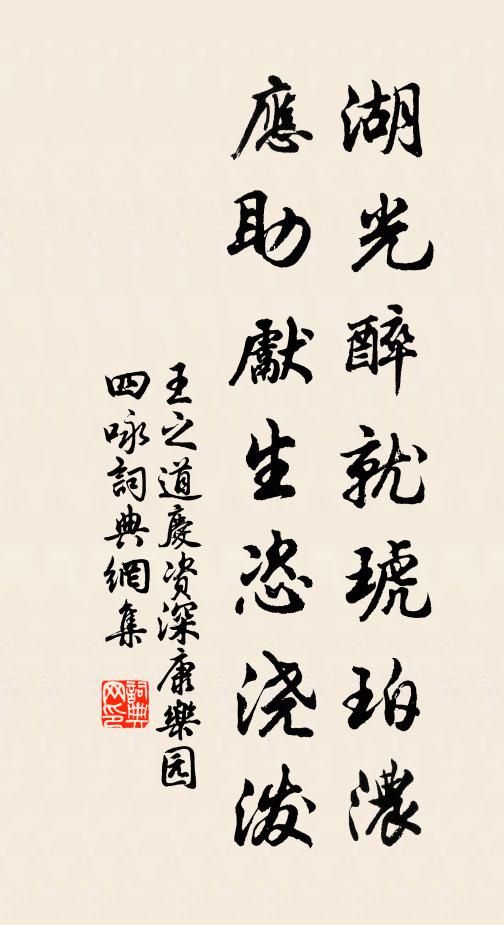 湖光醉就琥珀濃
應助獻生恣浇泼
王之道慶资深康樂园
四咏詞典網集
詞典
网印